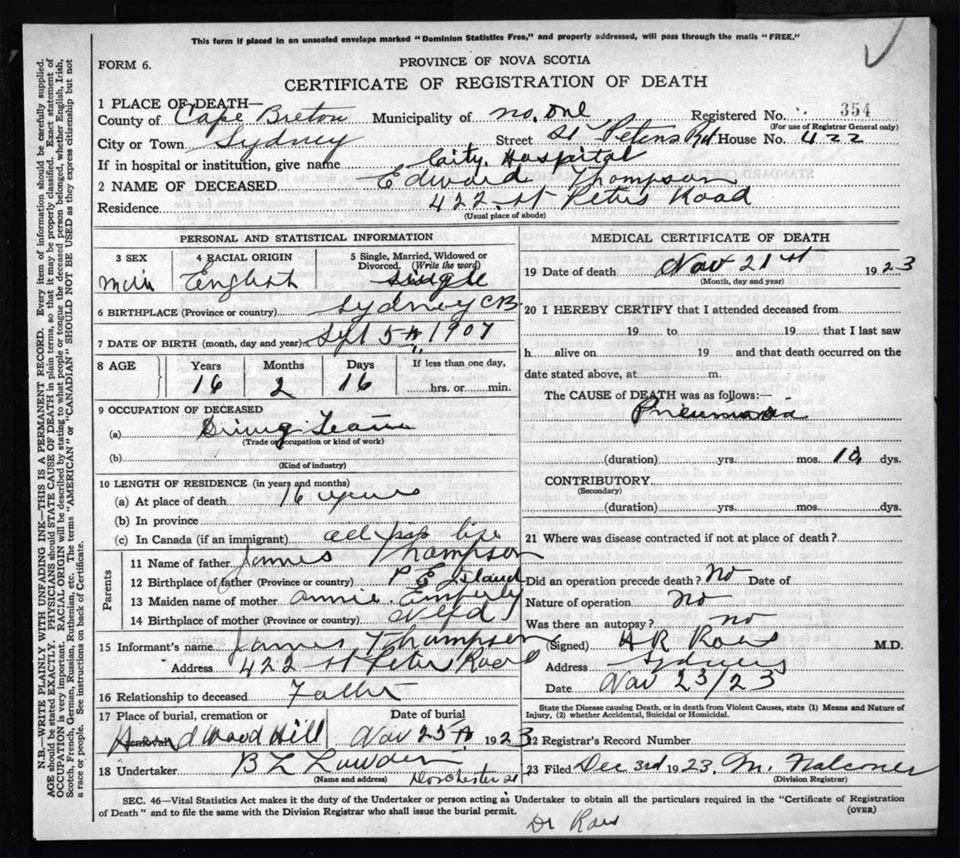 This form if placed in an unsealed envelope marked "Dominion Statistics Free," and properly addressed, will pass through the mails "FREE."
FORM 6.
PROVINCE OF NOVA SCOTIA
CERTIFICATE OF REGISTRATION OF DEATH
1 PLACE OF DEATH—
County of Cape Breton Municipality of No. One Registered No. 354
(For use of Registrar General only)
City or Town Sydney Street St Peters Rd House No. 422
If in hospital or institution, give name City Hospital
2 NAME OF DECEASED Edward Thompson
Residence 422 St Peters Road
(Usual place of abode)
PERSONAL AND STATISTICAL INFORMATION
3 SEX
4 RACIAL ORIGIN English
5 Single, Married, Widowed or Divorced. (Write the word) single
6 BIRTHPLACE (Province or country) Sydney CB
7 DATE OF BIRTH (month, day and year) Sept 5th 1907
8 AGE Years Months Days If less than one day,
16 2 16 hrs. or min.
9 OCCUPATION OF DECEASED
(a) Driving Team
(Trade or occupation or kind of work)
(b)
(Kind of industry)
10 LENGTH OF RESIDENCE (in years and months)
(a) At place of death 16 years
(b) In province
(c) In Canada (if an immigrant) all his life
Parents
11 Name of father James Thompson
12 Birthplace of father (Province or country) P E Island
13 Maiden name of mother Annie Emberly
14 Birthplace of mother (Province or country) Nfld
15 Informant's name James Thompson
Address 422 St Peters Road
16 Relationship to deceased Father
17 Place of burial, cremation or Date of burial
Hardwood Hill Nov 25th 1923
18 Undertaker B L
(Name and address) Dorchester St
MEDICAL CERTIFICATE OF DEATH
19 Date of death Nov 21st 1923
(Month, day and year)
20 I HEREBY CERTIFY that I attended deceased from
19 to 19 that I last saw
h alive on 19 and that death occurred on the
date stated above, at m.
The CAUSE of DEATH was as follows:—
Pneumonia
(duration) yrs. mos. 10 dys.
CONTRIBUTORY
(Secondary)
(duration) yrs. mos. dys.
21 Where was disease contracted if not at place of death?
Did an operation precede death? No Date of
Nature of operation no
Was there an autopsy? no
(Signed) H R Ross M.D.
Address Sydney
Date Nov 23/23
State the Disease causing Death, or in death from Violent Causes, state (1) Means and Nature of Injury, (2) whether Accidental, Suicidal or Homicidal.
22 Registrar's Record Number
23 Filed Dec 3rd 1923. M. Falconer
(Division Registrar)
SEC. 46—Vital Statistics Act makes it the duty of the Undertaker or person acting as Undertaker to obtain all the particulars required in the "Certificate of Registration
of Death" and to file the same with the Division Registrar who shall issue the burial permit. (OVER)
Dr Ross
N.B.—WRITE PLAINLY WITH UNFADING INK—THIS IS A PERMANENT RECORD. Every item of information should be carefully supplied.
AGE should be stated EXACTLY. PHYSICIANS should STATE CAUSE OF DEATH in plain terms, so that it may be properly classified. Exact statement of
OCCUPATION is very important. RACIAL ORIGIN will be described by stating to what people or tongue the deceased person belonged, whether English, Irish,
Scotch, French, German, Russian, Ruthenian, etc. The terms "AMERICAN" or "CANADIAN" SHOULD NOT BE USED as they express citizenship but not
a race or people. See instructions on back of Certificate.